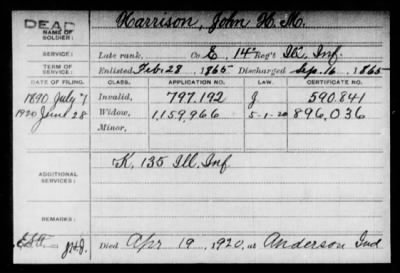 DEAD
NAME OF SOLDIER: Harrison, John H. M.
SERVICE: Late rank, Co E, 14" Reg't Ill. Inf.
TERM OF SERVICE: Enlisted Feb. 28, 1865 Discharged Sep. 16, 1865
DATE OF FILING. CLASS. APPLICATION NO. LAW. CERTIFICATE NO.
1890 July 7 Invalid, 797.192 J. 590.841
1920 June 28 Widow, 1,159,966 5-1-20 896,036
Minor,
ADDITIONAL SERVICES: K, 135 Ill. Inf.
REMARKS:
Died Apr 19, 1920, at Anderson Ind